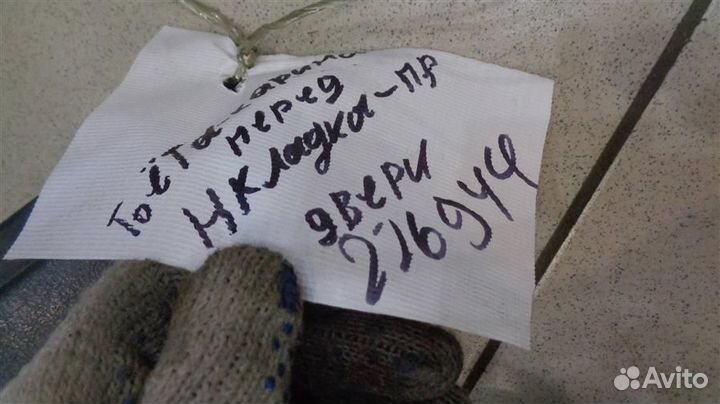 Тоёта-карина
перед
Нкладка-пр
двери
216944
Avito